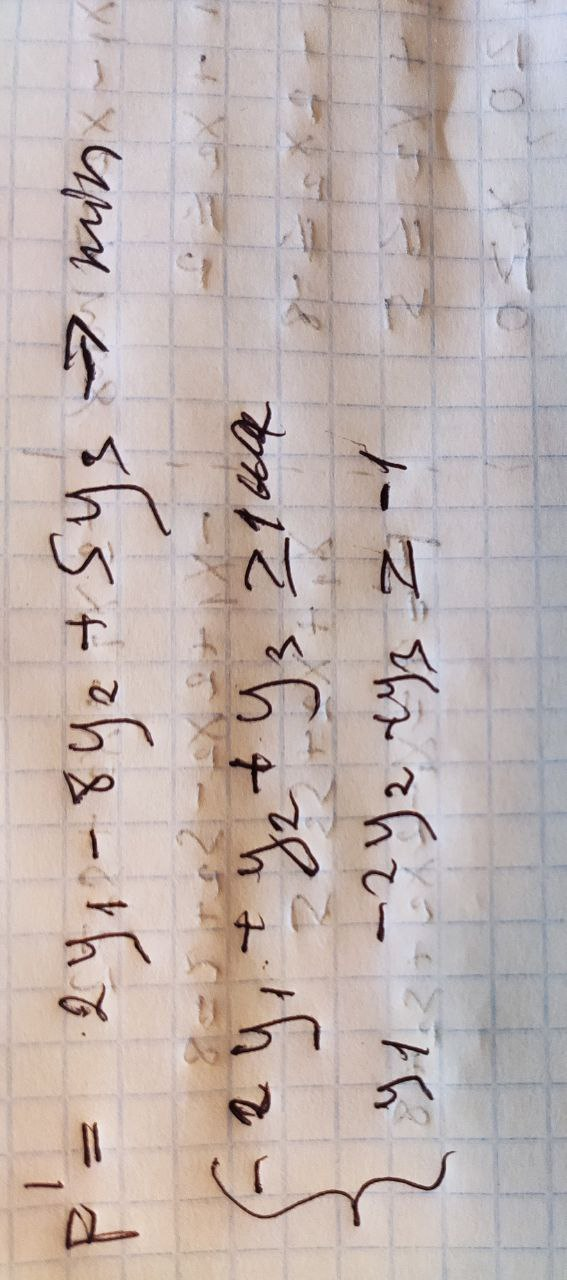 F' = 2y₁ - 8y₂ + 5y₃ → min
-2y₁ + y₂ + y₃ ≥ 1
y₁ -2y₂ + y₃ ≥ -1